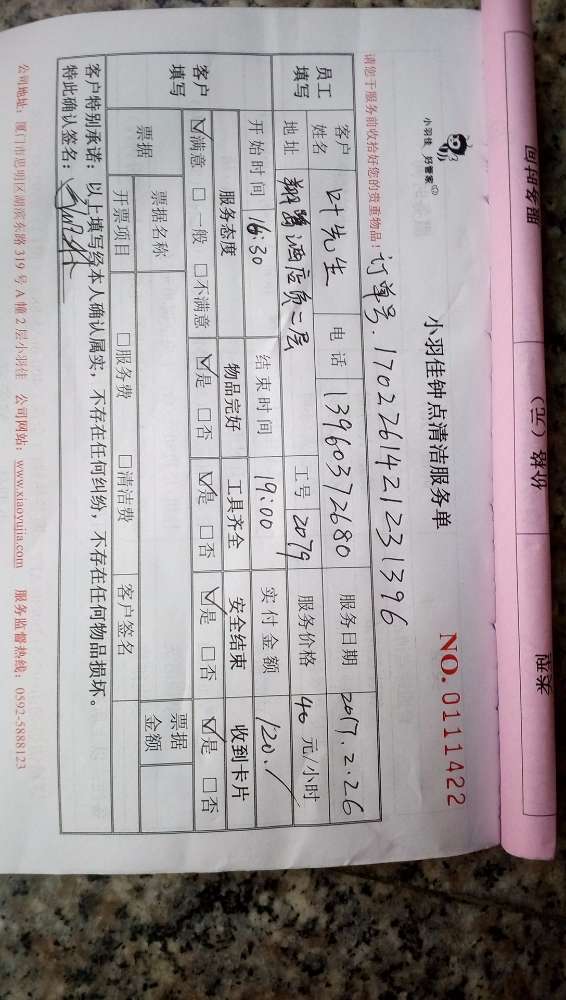 小羽佳 好管家
小羽佳钟点清洁服务单
NO. 0111422
请您于服务前收拾好您的贵重物品！ 订单号.170226142123 1396
员工填写 客户姓名 叶先生 电话 13960372680 服务日期 2017.2.26
地址 翔鹭酒店负二层 工号 2079 服务价格 40 元/小时
客户填写 开始时间 16:30 结束时间 19:00 实付金额 120.
服务态度 物品完好 工具齐全 安全结束 收到卡片
☑满意 □一般 □不满意 ☑是 □否 ☑是 □否 ☑是 □否 ☑是 □否
票据 票据名称 票据金额
开票项目 □服务费 □清洁费 客户签名
客户特别承诺：以上填写经本人确认属实，不存在任何纠纷，不存在任何物品损坏。
特此确认签名：
公司地址：厦门市思明区湖滨东路 319 号 A 幢 2 层小羽佳 公司网站：www.xiaoyujia.com 服务监督热线：0592-5888123